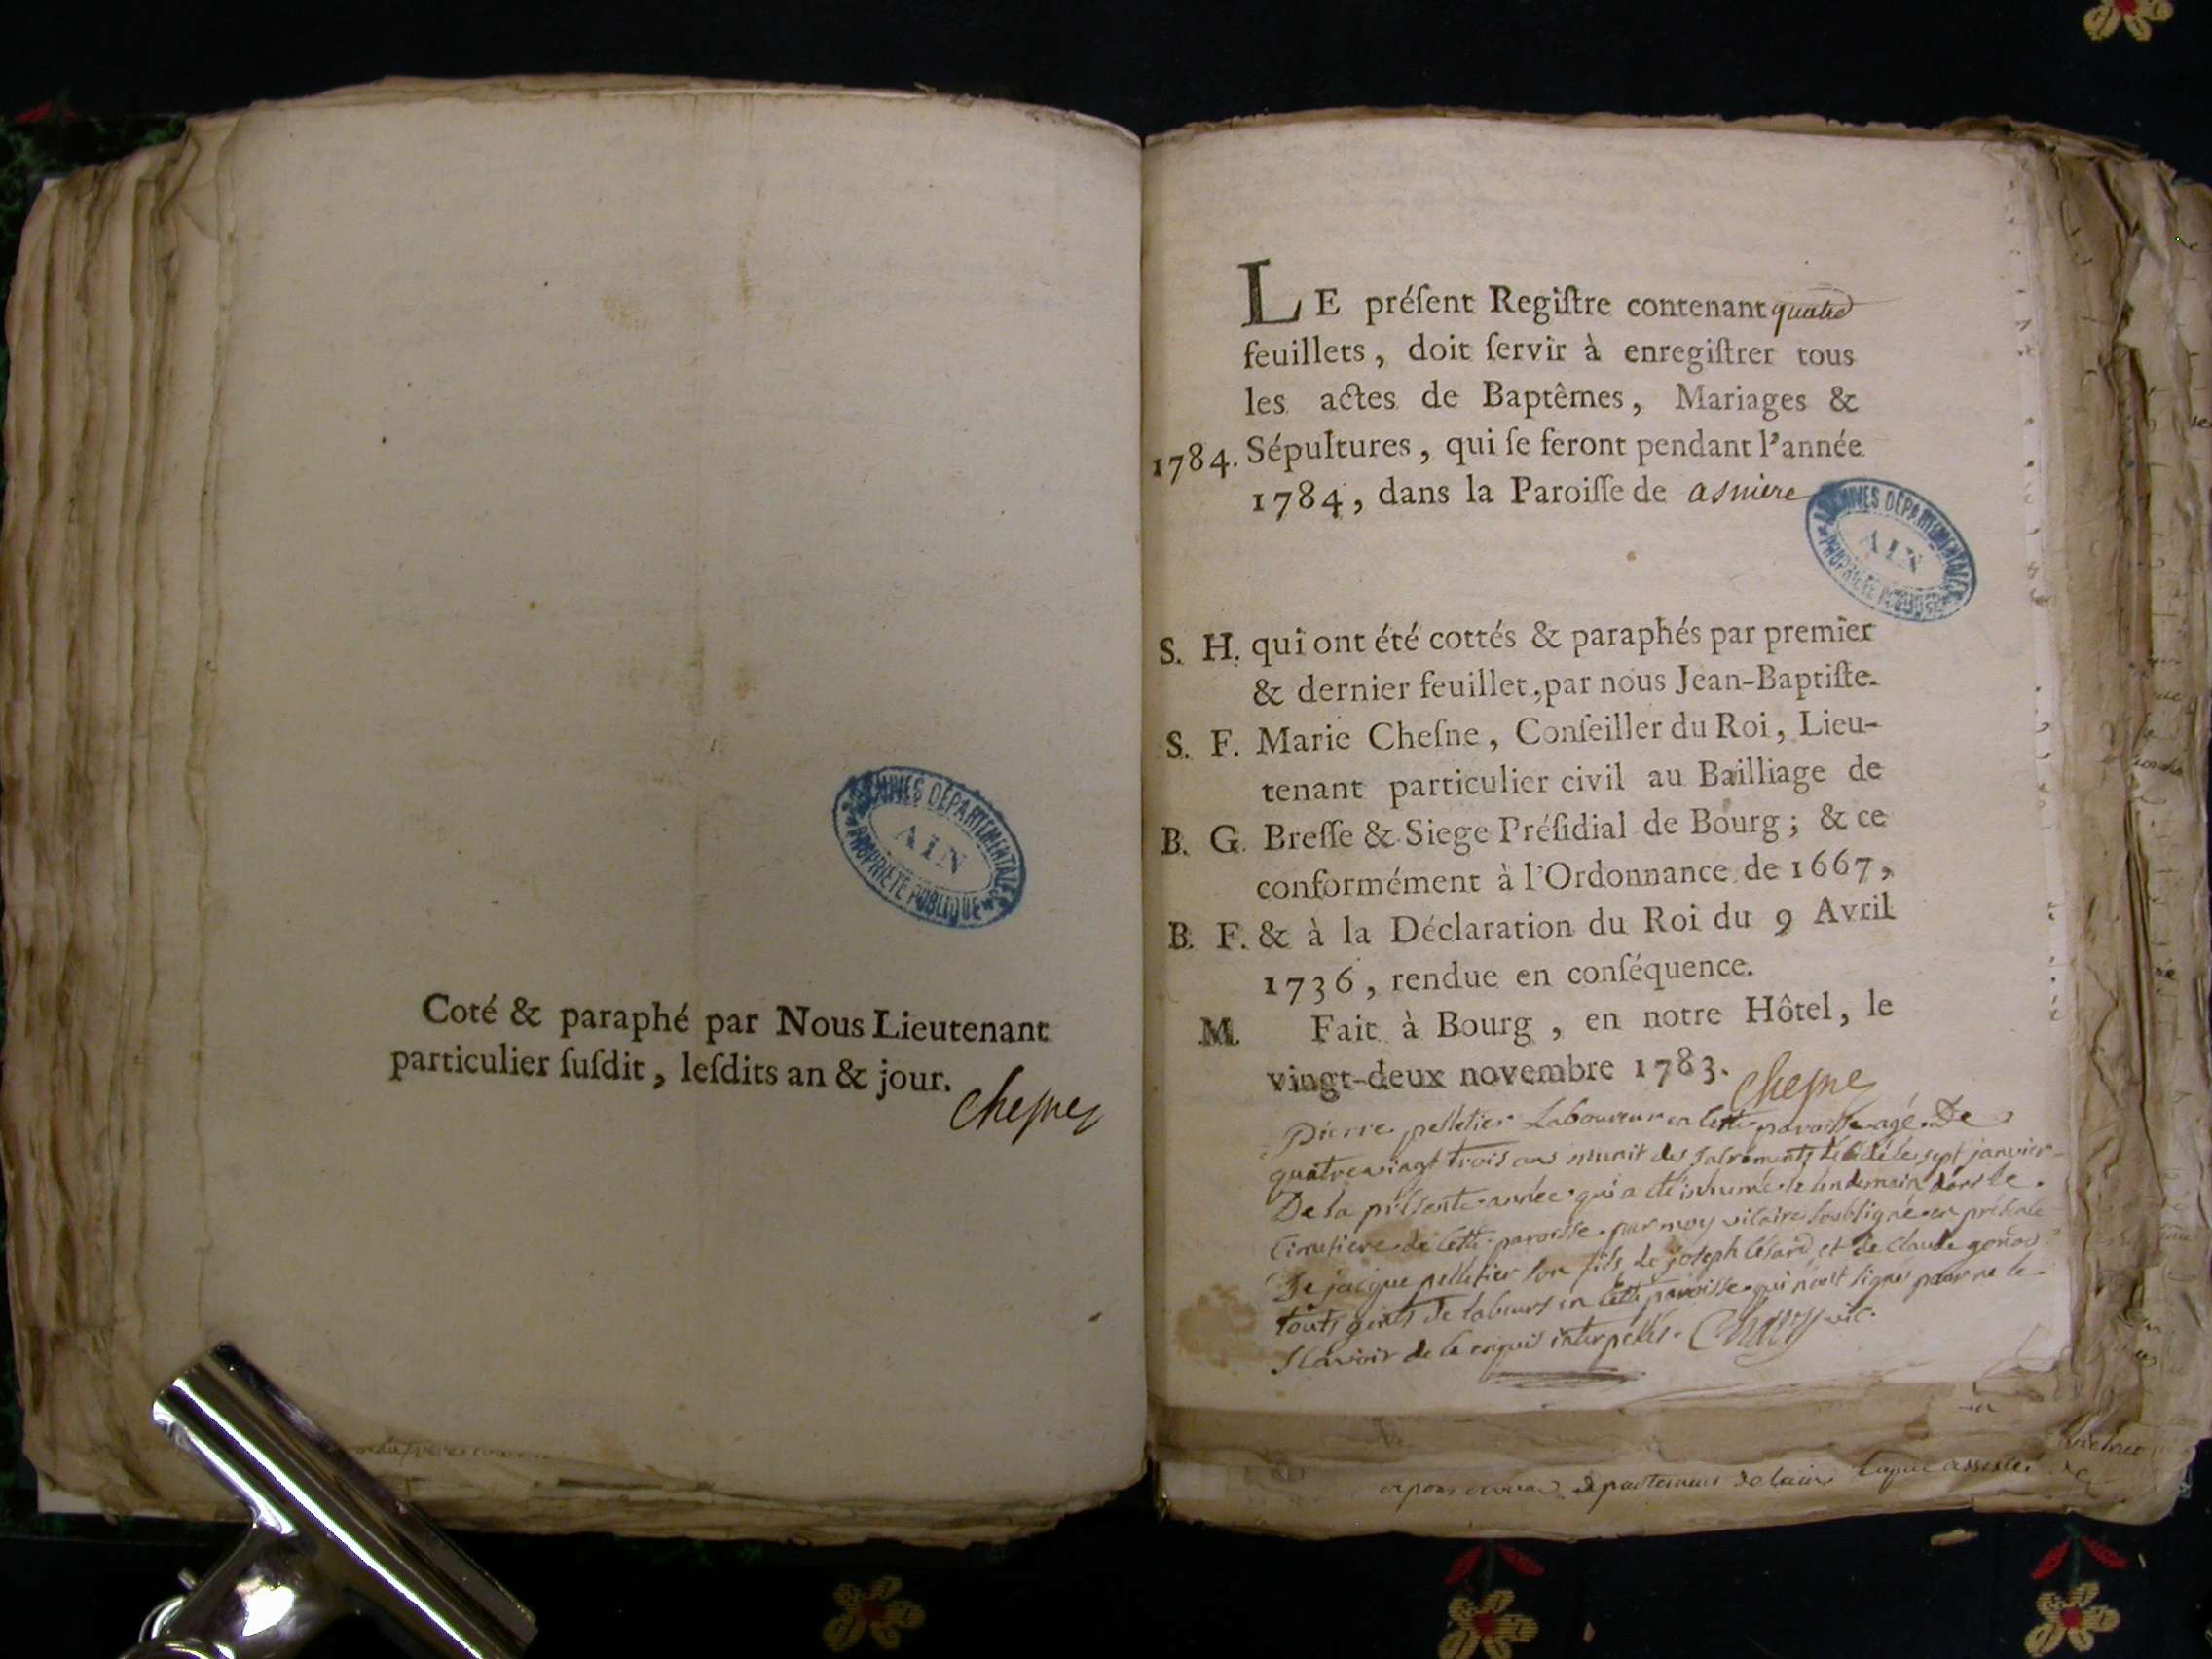 ARCHIVES DEPARTEMENTALES
AIN
PROPRIÉTÉ PUBLIQUE
Coté & paraphé par Nous Lieutenant
particulier ſuſdit, leſdits an & jour.
Chesne
LE préſent Regiſtre contenant quatre
feuillets, doit ſervir à enregiſtrer tous
les actes de Baptêmes, Mariages &
1784. Sépultures, qui ſe feront pendant l'année
1784, dans la Paroiſſe de asniere
ARCHIVES DEPARTEMENTALES
AIN
PROPRIÉTÉ PUBLIQUE
S. H. qui ont été cottés & paraphés par premier
& dernier feuillet, par nous Jean-Baptiſte-
S. F. Marie Cheſne, Conſeiller du Roi, Lieu-
tenant particulier civil au Bailliage de
B. G. Breſſe & Siege Préſidial de Bourg; & ce
conformément à l'Ordonnance de 1667,
B. F. & à la Déclaration du Roi du 9 Avril
1736, rendue en conſéquence.
M. Fait à Bourg, en notre Hôtel, le
vingt-deux novembre 1783. Chesne
Pierre pelletier Laboureur en cette paroisse agé De
quatrevingt trois ans munit des sacrements decédé le sept janvier
De la présente année qui a été inhumé le lendemain dans le
cimetiere de cette paroisse par moy vicaire soussigné en présence
De jacque pelletier son fils de joseph césard et de claude gonod
touts gents de labeurs en cette paroisse qui n'ont signés pour ne le
sçavoir de ce enquis interpellés. vic.
departement de lain